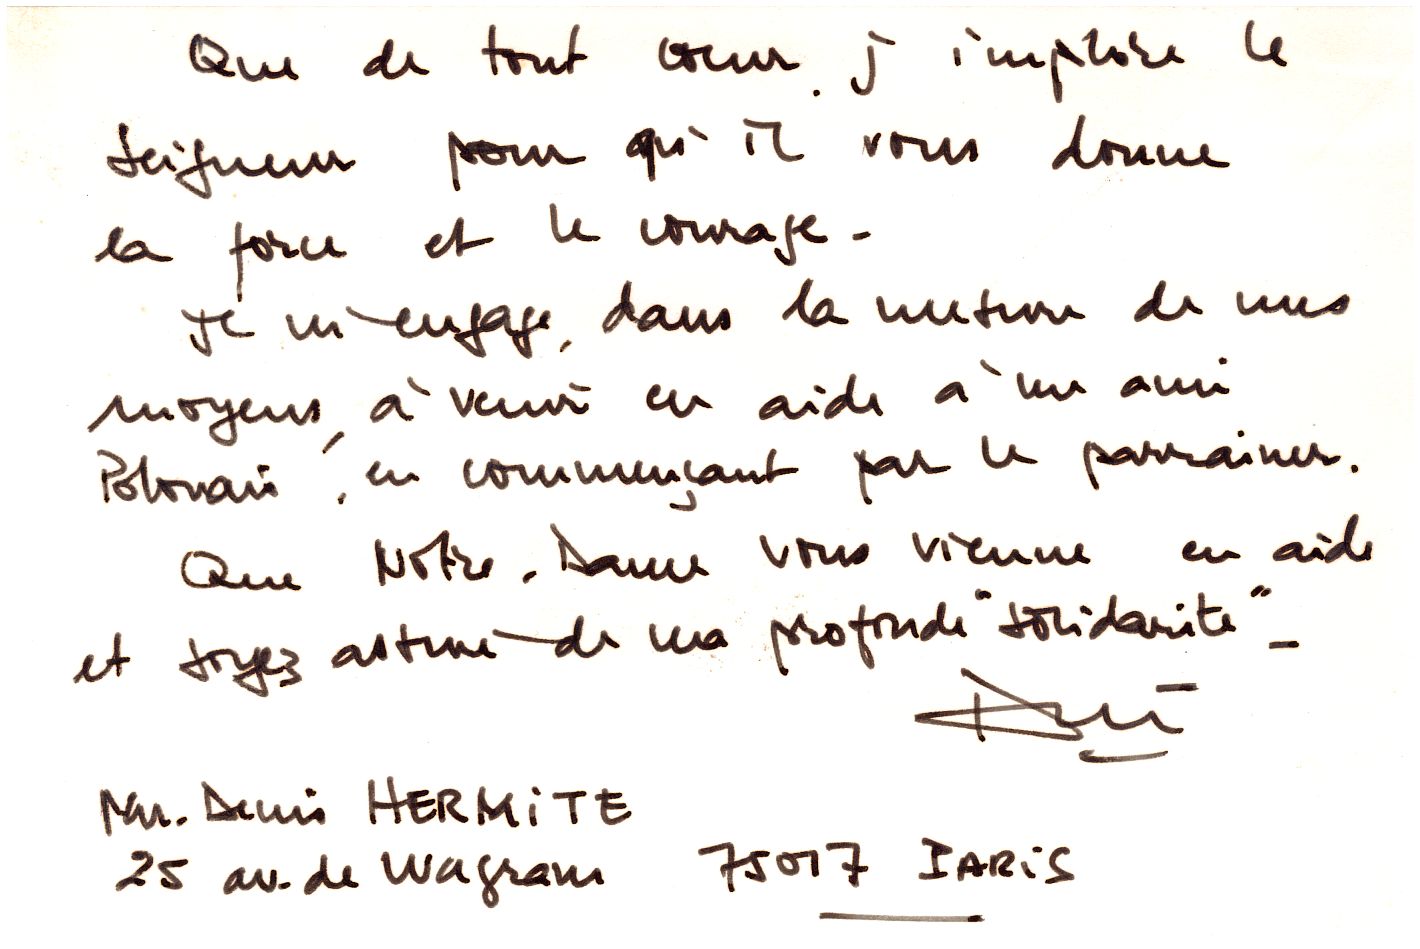 Que de tout coeur, j'implore le
Seigneur pour qu'il vous donne
la force et le courage -
Je m'engage, dans la mesure de mes
moyens, à venir en aide à un ami
Polonais, en commençant par le parrainer.
Que Notre-Dame vous vienne en aide
et soyez assuré de ma profonde "solidarité" -
Mr. Denis HERMITE
25 av. de Wagram 75017 PARIS